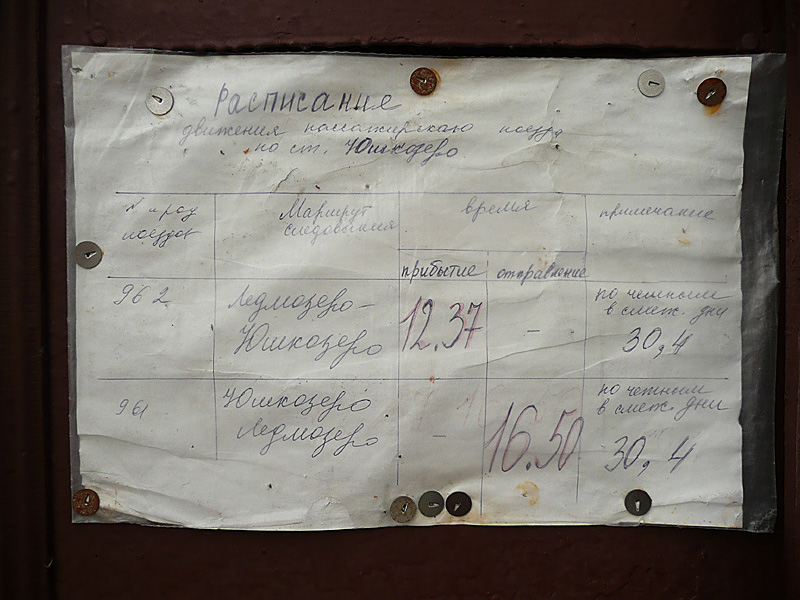 Расписание
движения пассажирского поезда
по ст. Юшкозеро
N и род
поездов
Маршрут
следования
время
примечание
прибытие
отправление
962
Ледмозеро-
Юшкозеро
12.37
–
по четным
в смеж. дни
30,4
961
Юшкозеро
Ледмозеро
–
16.50
по четным
в смеж. дни
30,4